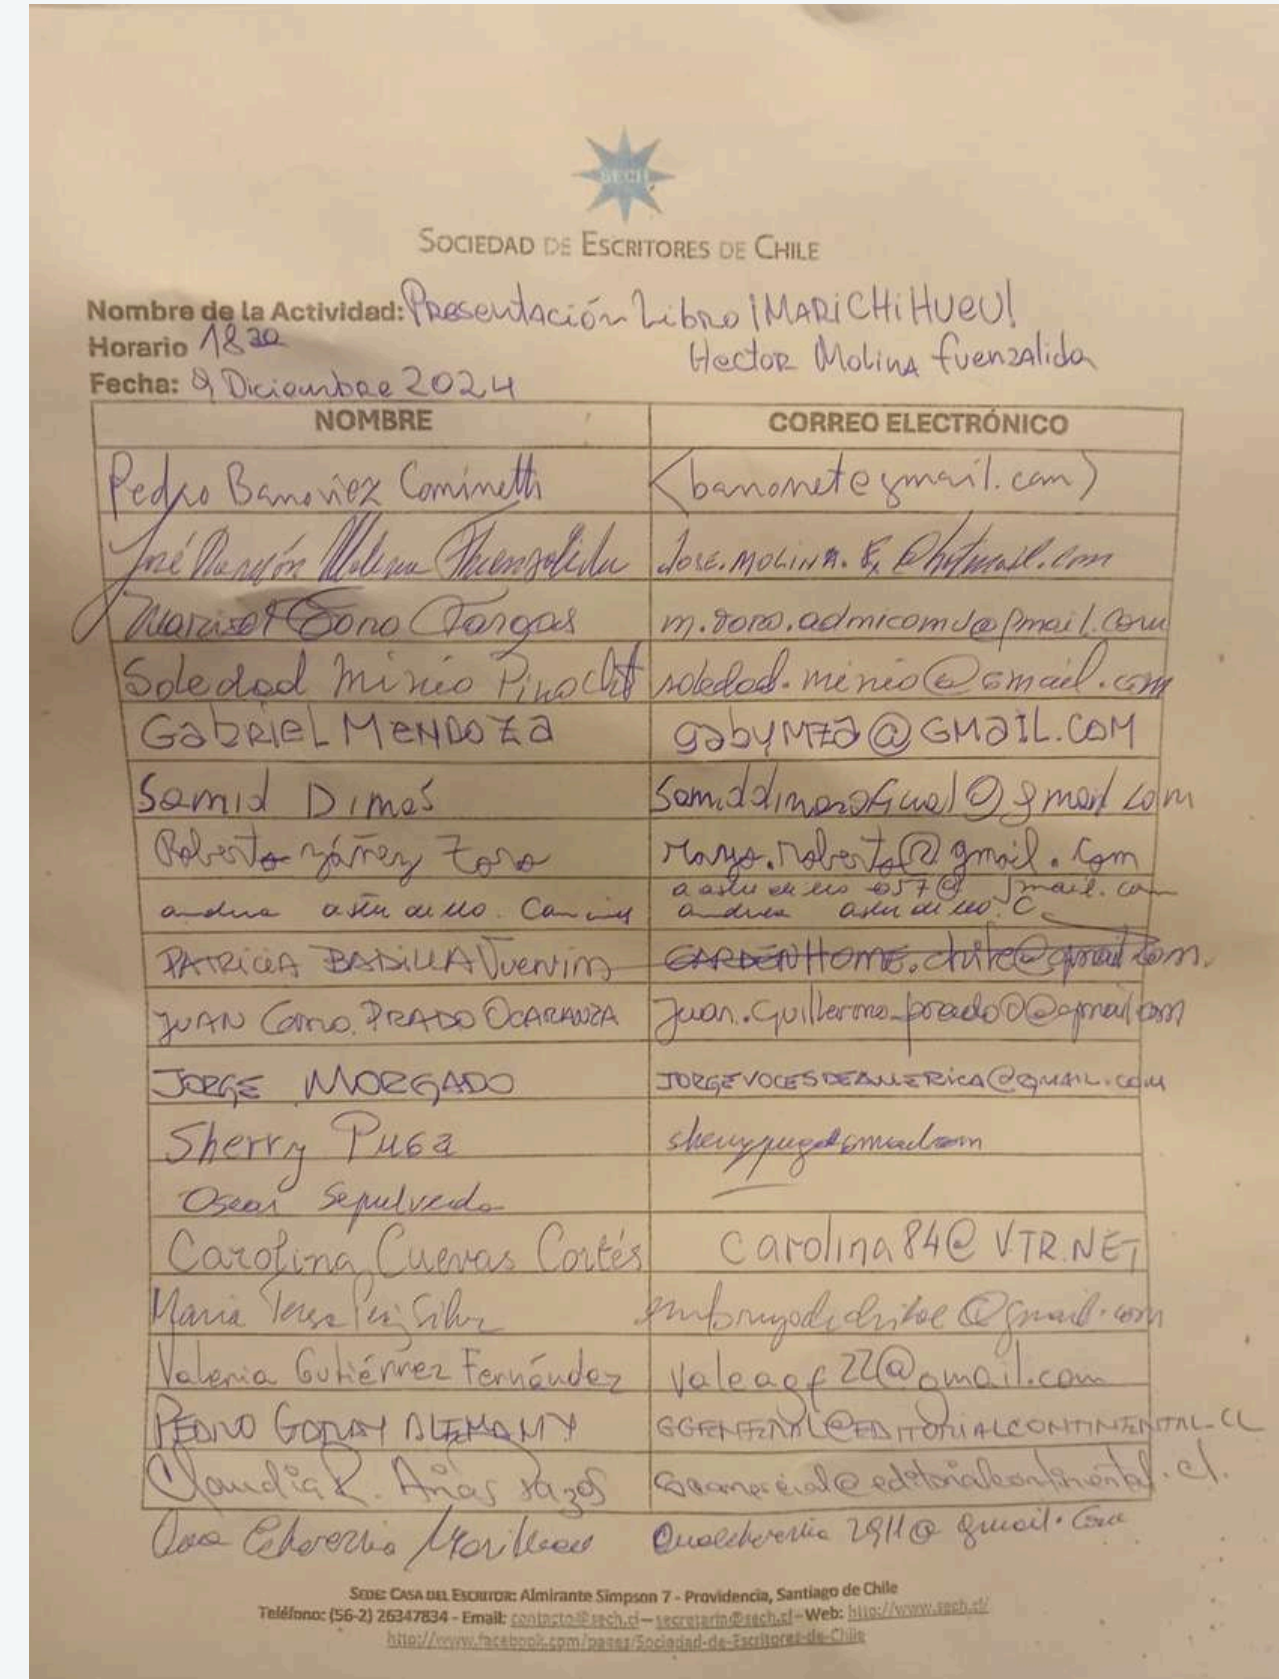 SECH
SOCIEDAD DE ESCRITORES DE CHILE
Nombre de la Actividad: Presentación Libro ¡MARICHIHUEU!
Horario 18 30 Hector Molina Fuenzalida
Fecha: 9 Diciembre 2024
NOMBRE CORREO ELECTRÓNICO
Pedro Banoviez Cominetti <banonet@gmail.com>
José Ramón Molina Fuenzalida JOSE.MOLINA.F,@hotmail.com
Marisol Toro Vargas m.toro.admicomv@gmail.com
Soledad Minio Pinochet soledad.minio@gmail.com
Gabriel Mendoza gabymza@GMAIL.COM
Samid Dimas @gmail.com
Roberto Yáñez Toro @gmail.com
andrea astudillo. 057@gmail.com
andrea astudillo. C
PATRICIA BADILLA GARDENHOME.chile@gmail.com.
JUAN PRADO OCARANZA Juan.Guillermo.prado0@gmail.com
JORGE MORGADO JORGEVOCESDEAMERICA@GMAIL.COM
Sherry Puga sherrypuga@gmail.com
Oscar Sepulveda
Carolina Cuevas Cortés Carolina84@VTR.NET
Maria Teresa Silva @gmail.com
Valeria Gutiérrez Fernández Valeagf22@gmail.com
PEDRO GODOY ALEMANY GGENERAL@EDITORIALCONTINENTAL.CL
Claudia R. Arias Pazos gcomercial@editorialcontinental.cl.
Ana Echeverria 2911@gmail.com
SEDE: CASA DEL ESCRITOR: Almirante Simpson 7 - Providencia, Santiago de Chile
Teléfono: (56-2) 26347834 - Email: contacto@sech.cl – secretaria@sech.cl – Web: http://www.sech.cl/
http://www.facebook.com/pages/Sociedad-de-Escritores-de-Chile